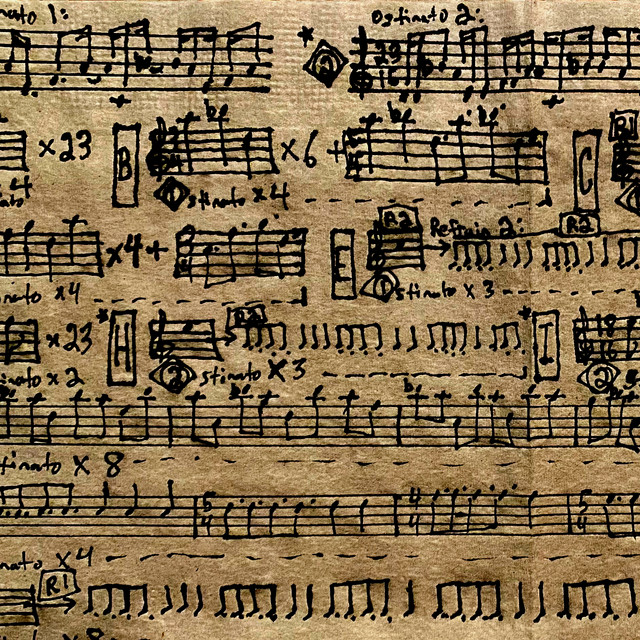 nato 1: Ostinato 2:
* 2 29 16
x23 B x6 + C R1
1 stinato x4
R2 Refrain 2: R2
x4 + E
nato x4 1 stinato x3
x23 * H R2 * I
nato x2 2 stinato x3 2
tinato x 8
5 4 4 4 5 4
nato x4
R1